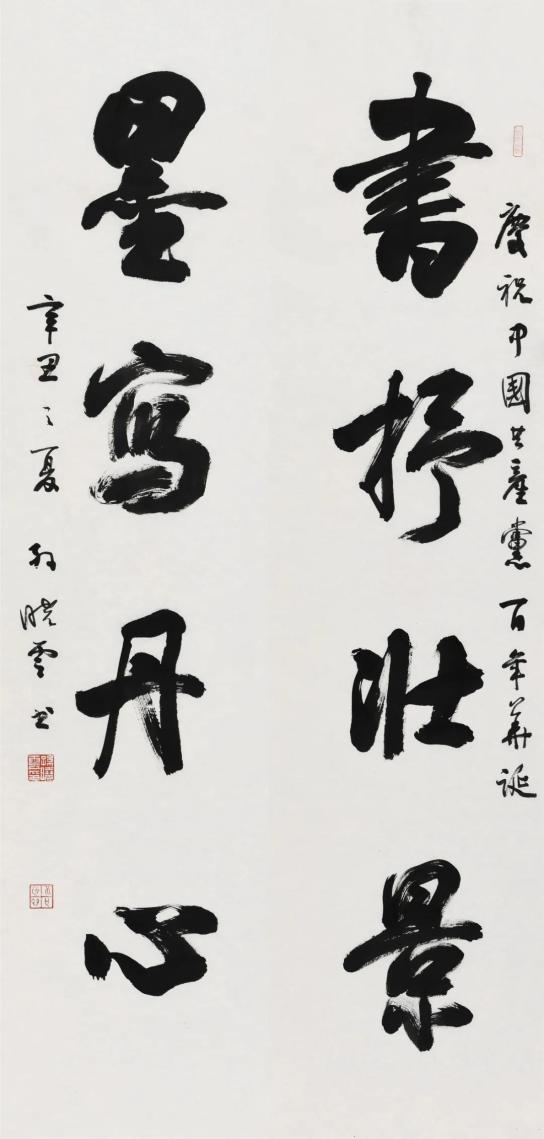 慶祝中國共產黨百年華誕
書抒壯景
墨寫丹心
辛丑之夏 孙晓雲书